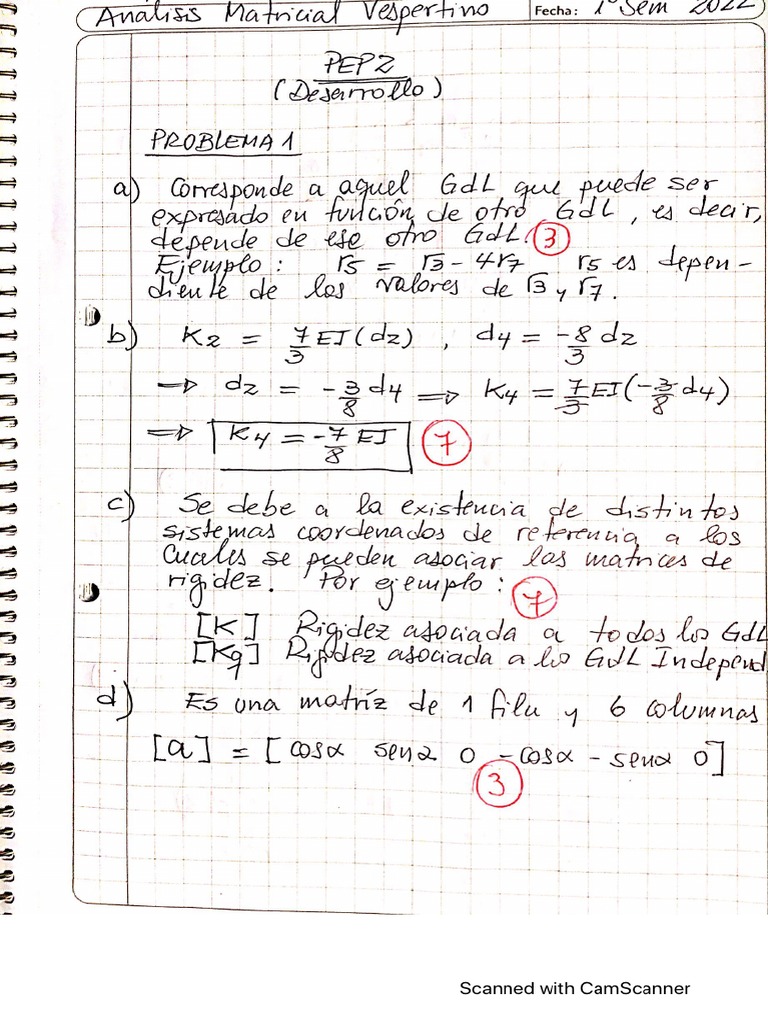 Análisis Matricial Vespertino Fecha: 1° Sem 2022
PEP2
(Desarrollo)
PROBLEMA 1
a) Corresponde a aquel GdL que puede ser
expresado en función de otro GdL, es decir,
depende de ese otro GdL. 3
Ejemplo: r5 = r3 - 4r7 r5 es depen-
diente de los valores de r3 y r7.
b) K2 = 7/3 EI(d2), d4 = -8/3 d2
→ d2 = -3/8 d4 ⇒ K4 = 7/3 EI(-3/8 d4)
⇒ K4 = -7/8 EI 7
c) Se debe a la existencia de distintos
sistemas coordenados de referencia a los
cuales se pueden asociar las matrices de
rigidez. Por ejemplo: 7
[K] Rigidez asociada a todos los GdL
[Kq] Rigidez asociada a los GdL Independ
d) Es una matríz de 1 fila y 6 columnas
[a] = [cosα senα 0 -cosα -senα 0]
3
Scanned with CamScanner